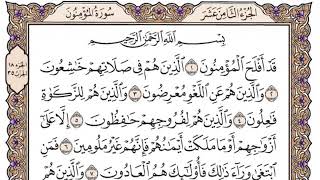 الجزء الثامن عشر
سورة المؤمنون
بِسْمِ اللَّهِ الرَّحْمَٰنِ الرَّحِيمِ
قَدْ أَفْلَحَ الْمُؤْمِنُونَ ١ الَّذِينَ هُمْ فِي صَلَاتِهِمْ خَاشِعُونَ
٢ وَالَّذِينَ هُمْ عَنِ اللَّغْوِ مُعْرِضُونَ ٣ وَالَّذِينَ هُمْ لِلزَّكَاةِ
فَاعِلُونَ ٤ وَالَّذِينَ هُمْ لِفُرُوجِهِمْ حَافِظُونَ ٥ إِلَّا عَلَىٰ
أَزْوَاجِهِمْ أَوْ مَا مَلَكَتْ أَيْمَانُهُمْ فَإِنَّهُمْ غَيْرُ مَلُومِينَ ٦ فَمَنِ
ابْتَغَىٰ وَرَاءَ ذَٰلِكَ فَأُولَٰئِكَ هُمُ الْعَادُونَ ٧ وَالَّذِينَ هُمْ